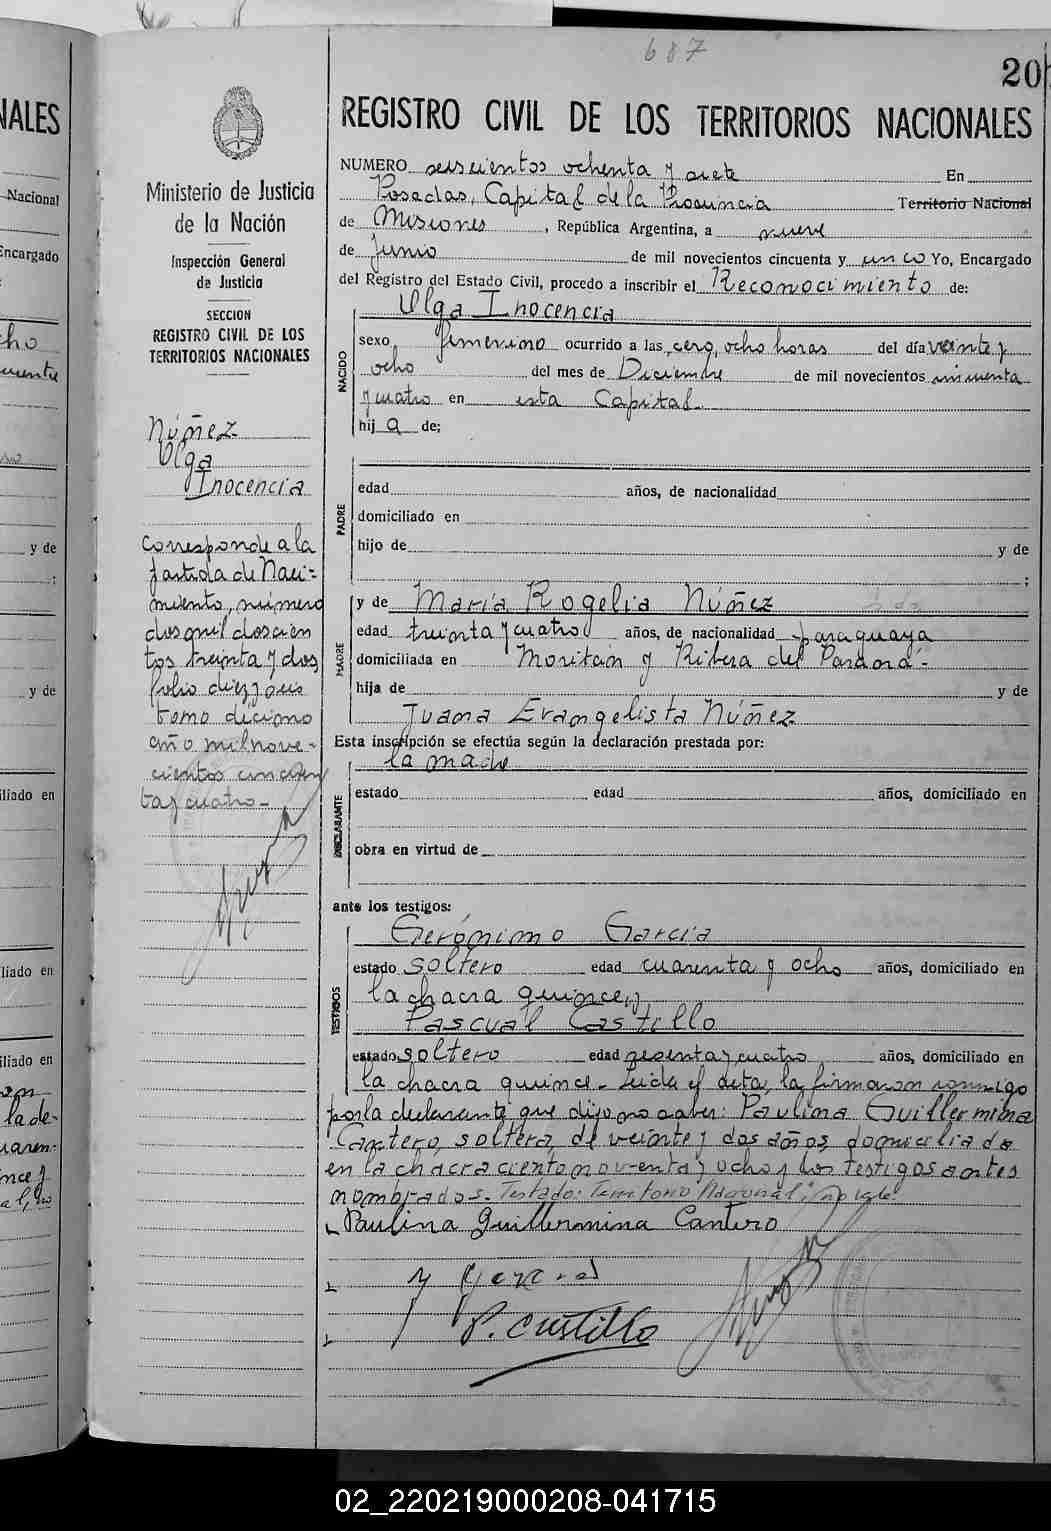 687
20
NALES
Nacional
Encargado
cho
y de
y de
iliado en
liado en
iliado en
la de-
uaren-
Ministerio de Justicia
de la Nación
Inspección General
de Justicia
SECCION
REGISTRO CIVIL DE LOS
TERRITORIOS NACIONALES
Núñez
Olga
Inocencia
Corresponde a la
partida de Naci-
miento, número
dos mil doscien
tos treinta y dos,
folio diez y seis
tomo décimo
año mil nove-
cientos cincuen
ta y cuatro-
REGISTRO CIVIL DE LOS TERRITORIOS NACIONALES
NUMERO seiscientos ochenta y siete En
Posadas, Capital de la Provincia Territorio Nacional
de Misiones, República Argentina, a nueve
de Junio de mil novecientos cincuenta y cinco Yo, Encargado
del Registro del Estado Civil, procedo a inscribir el Reconocimiento de:
Olga Inocencia
NACIDO
sexo femenino ocurrido a las cero, ocho horas del día veinte y
ocho del mes de Diciembre de mil novecientos cincuenta
y cuatro en esta Capital.
hij a de;
PADRE
edad años, de nacionalidad
domiciliado en
hijo de y de
;
MADRE
y de María Rogelia Núñez
edad treinta y cuatro años, de nacionalidad paraguaya
domiciliada en Moritán y Ribera del Paraná-
hija de y de
Juana Evangelista Núñez
Esta inscripción se efectúa según la declaración prestada por:
la madre
DECLARANTE
estado edad años, domiciliado en
obra en virtud de
ante los testigos:
TESTIGOS
Gerónimo García
estado soltero edad cuarenta y ocho años, domiciliado en
la chacra quince, y
Pascual Castillo
estado soltero edad sesenta y cuatro años, domiciliado en
la chacra quince- Leída el acta, la firmaron conmigo
por la declarante que dijo no saber: Paulina Guillermina
Cantero, soltera, de veinte y dos años, domiciliada
en la chacra ciento noventa y ocho y los testigos antes
nombrados. Testado: "Territorio Nacional", no vale
Paulina Guillermina Cantero
P. Castillo
02_220219000208-041715